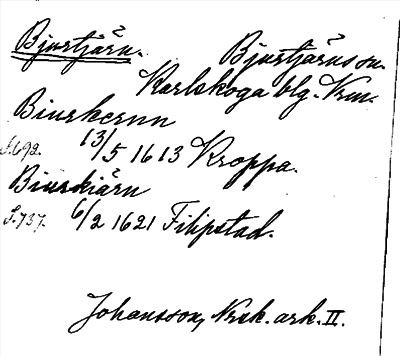 Bjurtjärn. Bjurtjärns sn.
Karlskoga blg. Vrm.
Biurkernn
S.692. 13/5 1613 Kroppa.
Biurkiärn
S.737. 6/2 1621 Filipstad.
Johansson, Nrsk. ark. II.